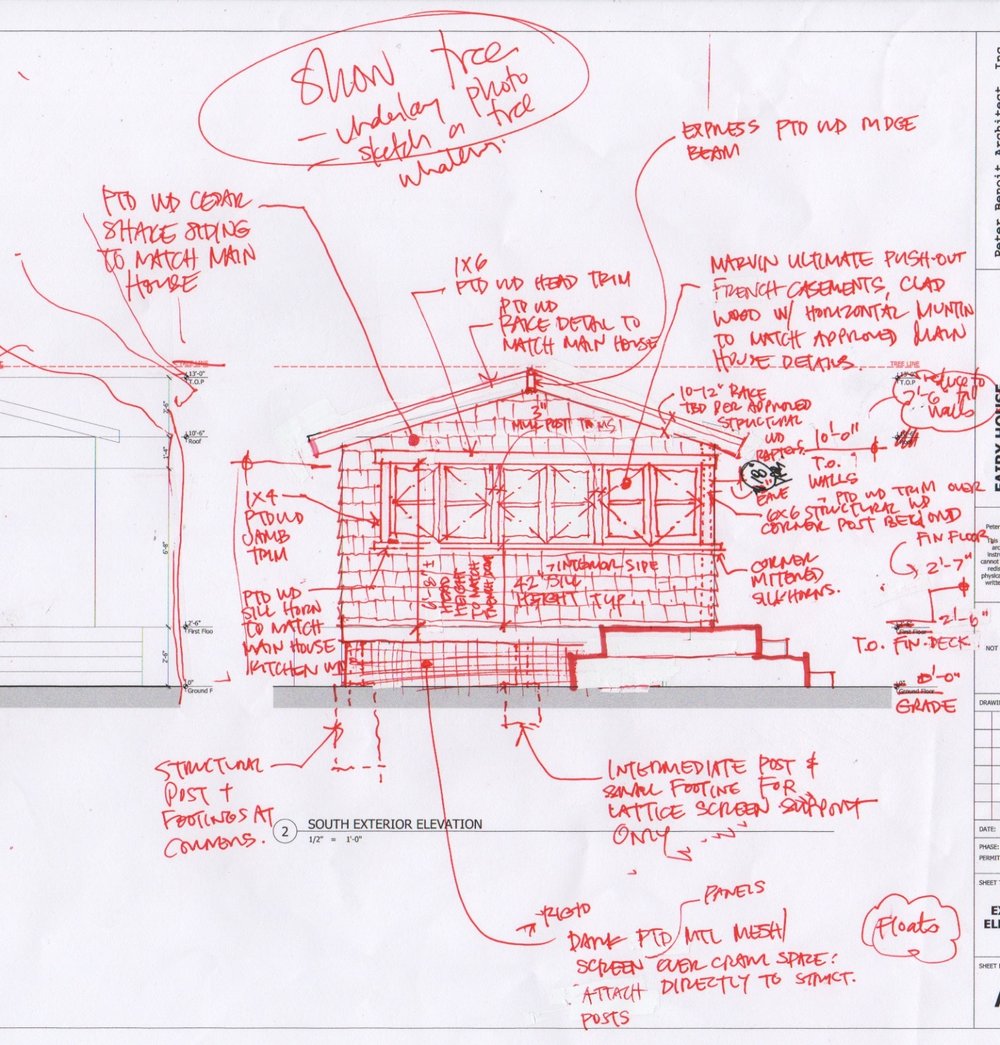 Show tree
- underlay photo
- sketch a tree
whatever.
EXPRESS PTD WD RIDGE
BEAM
PTD WD CEDAR
SHAKE SIDING
TO MATCH MAIN
HOUSE
1X6
PTD WD HEAD TRIM
PTD WD
RAKE DETAIL TO
MATCH MAIN HOUSE
MARVIN ULTIMATE PUSH-OUT
FRENCH CASEMENTS, CLAD
WOOD W/ HORIZONTAL MUNTIN
TO MATCH APPROVED MAIN
HOUSE DETAILS.
TREE LINE
13'-0"
T.O.P
10'-6"
Roof
6'-8"
2'-6"
First Floo
2'-6"
0"
Ground F
TREE LINE
T.O.P
reduce to
walls
10-12" RAKE
TBD PER APPROVED
STRUCTURAL
WD
RAFTERS
3"
MULL POST
10'-0"
T.O.
WALLS
18"
EAVE
PTD WD TRIM OVER
6X6 STRUCTURAL WD
CORNER POST BEYOND
1X4
PTD WD
JAMB
TRIM
FIN FLOOR
2'-7"
CORNER
MITERED
SILL HORNS.
INTERIOR SIDE
42" SILL
HEIGHT TYP.
6'-8" ±
HEAD
HEIGHT
TO MATCH
FRENCH DOOR
PTD WD
SILL HORN
TO MATCH
MAIN HOUSE
KITCHEN WD
2'-6"
First Floor
T.O. FIN-DECK
0'-0"
Ground Floor
GRADE
STRUCTURAL
POST +
FOOTINGS AT
CORNERS.
INTERMEDIATE POST &
SMALL FOOTING FOR
LATTICE SCREEN SUPPORT
ONLY
2
SOUTH EXTERIOR ELEVATION
1/2" = 1'-0"
PANELS
RIGID
DARK PTD MTL MESH/
SCREEN OVER CRAWL SPACE:
ATTACH DIRECTLY TO STRUCT.
POSTS
Floats
Peter Benoit Architect, Inc
FAIRY HOUSE
NOT
DATE:
PHASE:
PERMIT
SHEET T
EX
ELE
SHEET
A